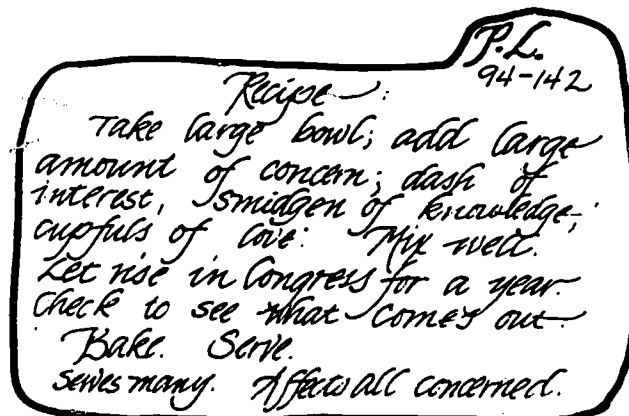 P.L.
94-142
Recipe:
Take large bowl; add large
amount of concern; dash of
interest, smidgen of knowledge;
cupfuls of love. Mix well.
Let rise in Congress for a year.
Check to see what comes out.
Bake. Serve.
Serves many. Affects all concerned.